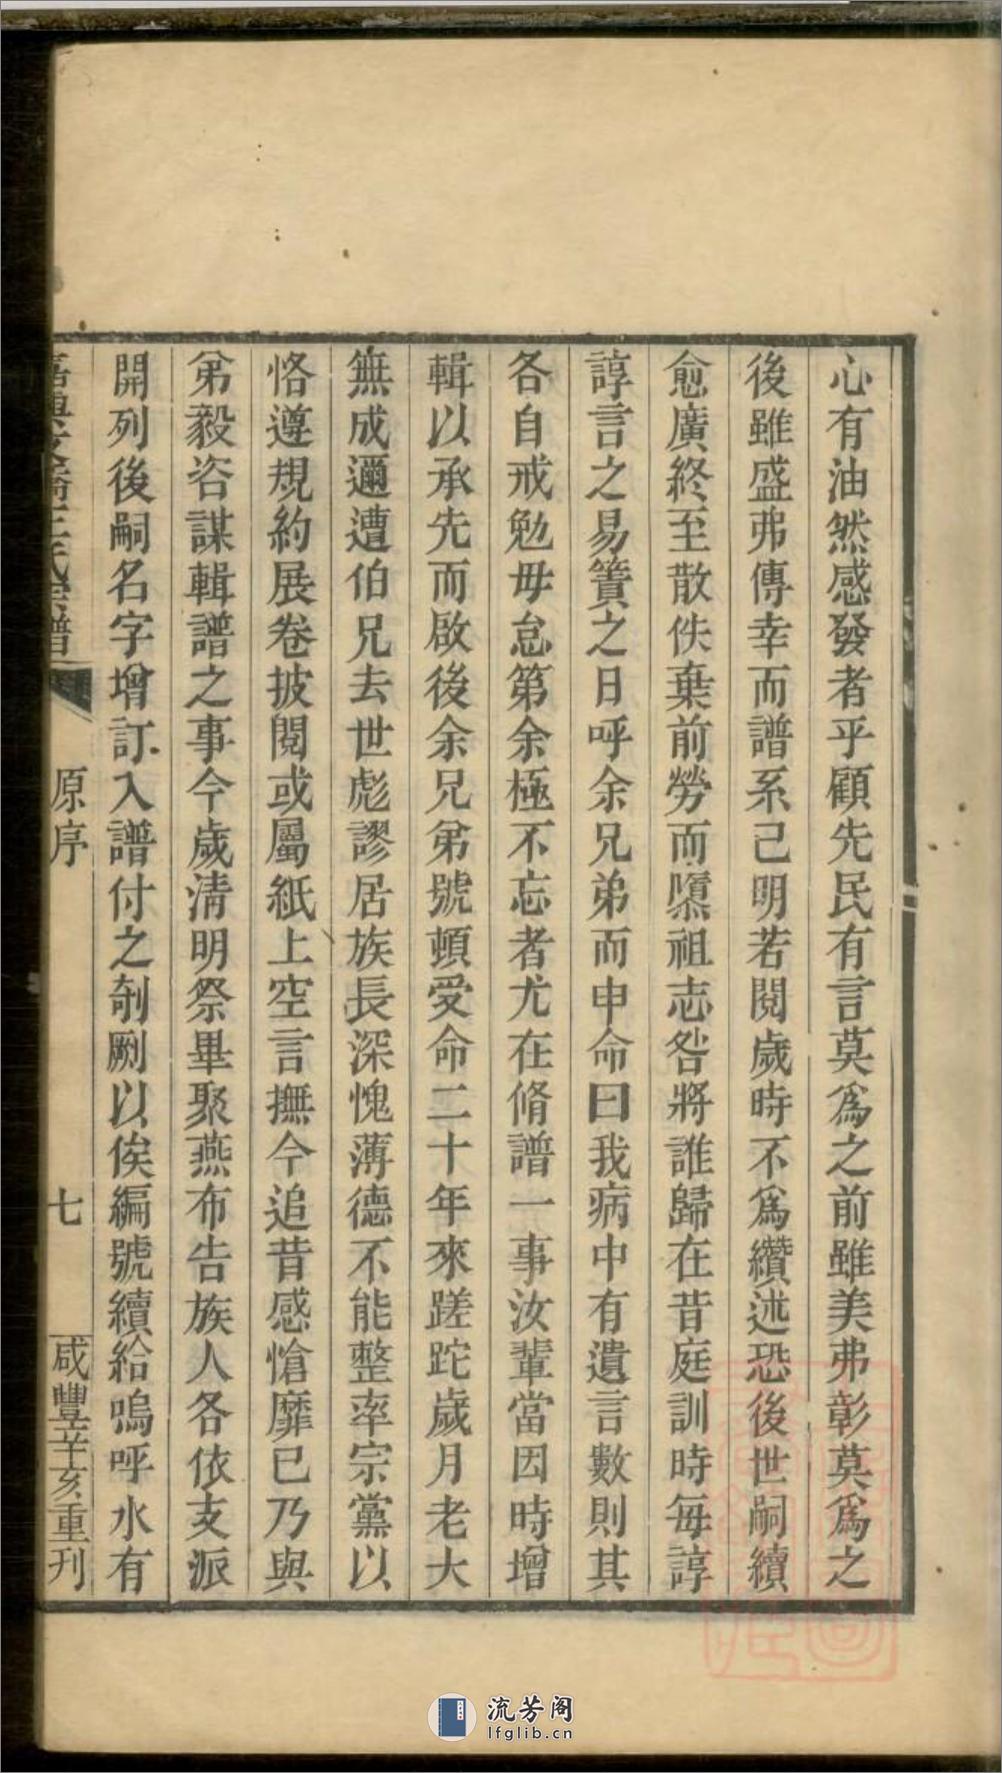 心有油然感發者乎顧先民有言莫爲之前雖美弗彰莫爲之
後雖盛弗傳幸而譜系已明若閱歲時不爲纘述恐後世嗣續
愈廣終至散佚棄前勞而隳祖志咎將誰歸在昔庭訓時每諄
諄言之易簀之日呼余兄弟而申命曰我病中有遺言數則其
各自戒勉毋怠第余極不忘者尤在脩譜一事汝輩當因時增
輯以承先而啟後余兄弟號頓受命二十年來蹉跎歲月老大
無成邇遭伯兄去世彪謬居族長深愧薄德不能整率宗黨以
恪遵規約展卷披閱或屬紙上空言撫今追昔感愴靡已乃與
弟毅咨謀輯譜之事今歲清明祭畢聚燕布告族人各依支派
開列後嗣名字增訂入譜付之剞劂以俟編號續給嗚呼水有
王氏宗譜
原序
七
咸豐辛亥重刊
流芳阁
lfglib.cn